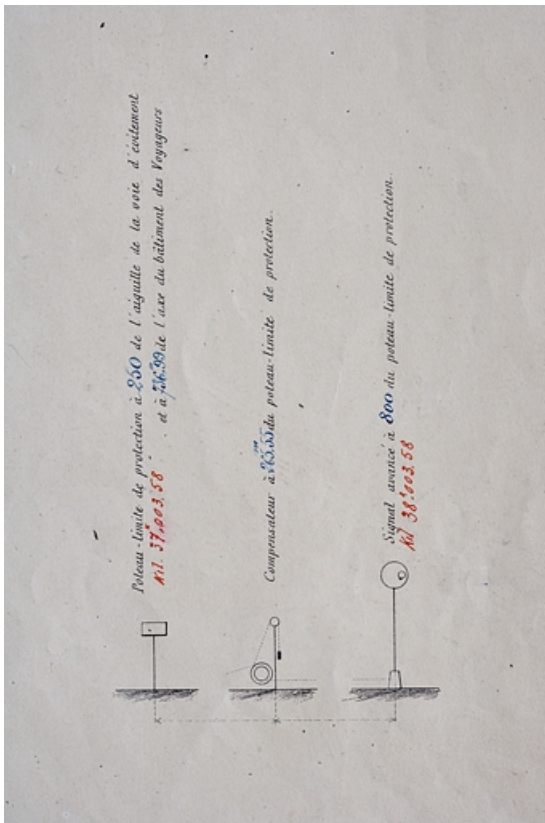 Poteau-limite de protection à 250 de l'aiguille de la voie d'évitement
Kil. 37k003.58 et à de l'axe du bâtiment des Voyageurs
Compensateur à du poteau-limite de protection.
Signal avancé à 800 du poteau-limite de protection.
Kil 38k003.58